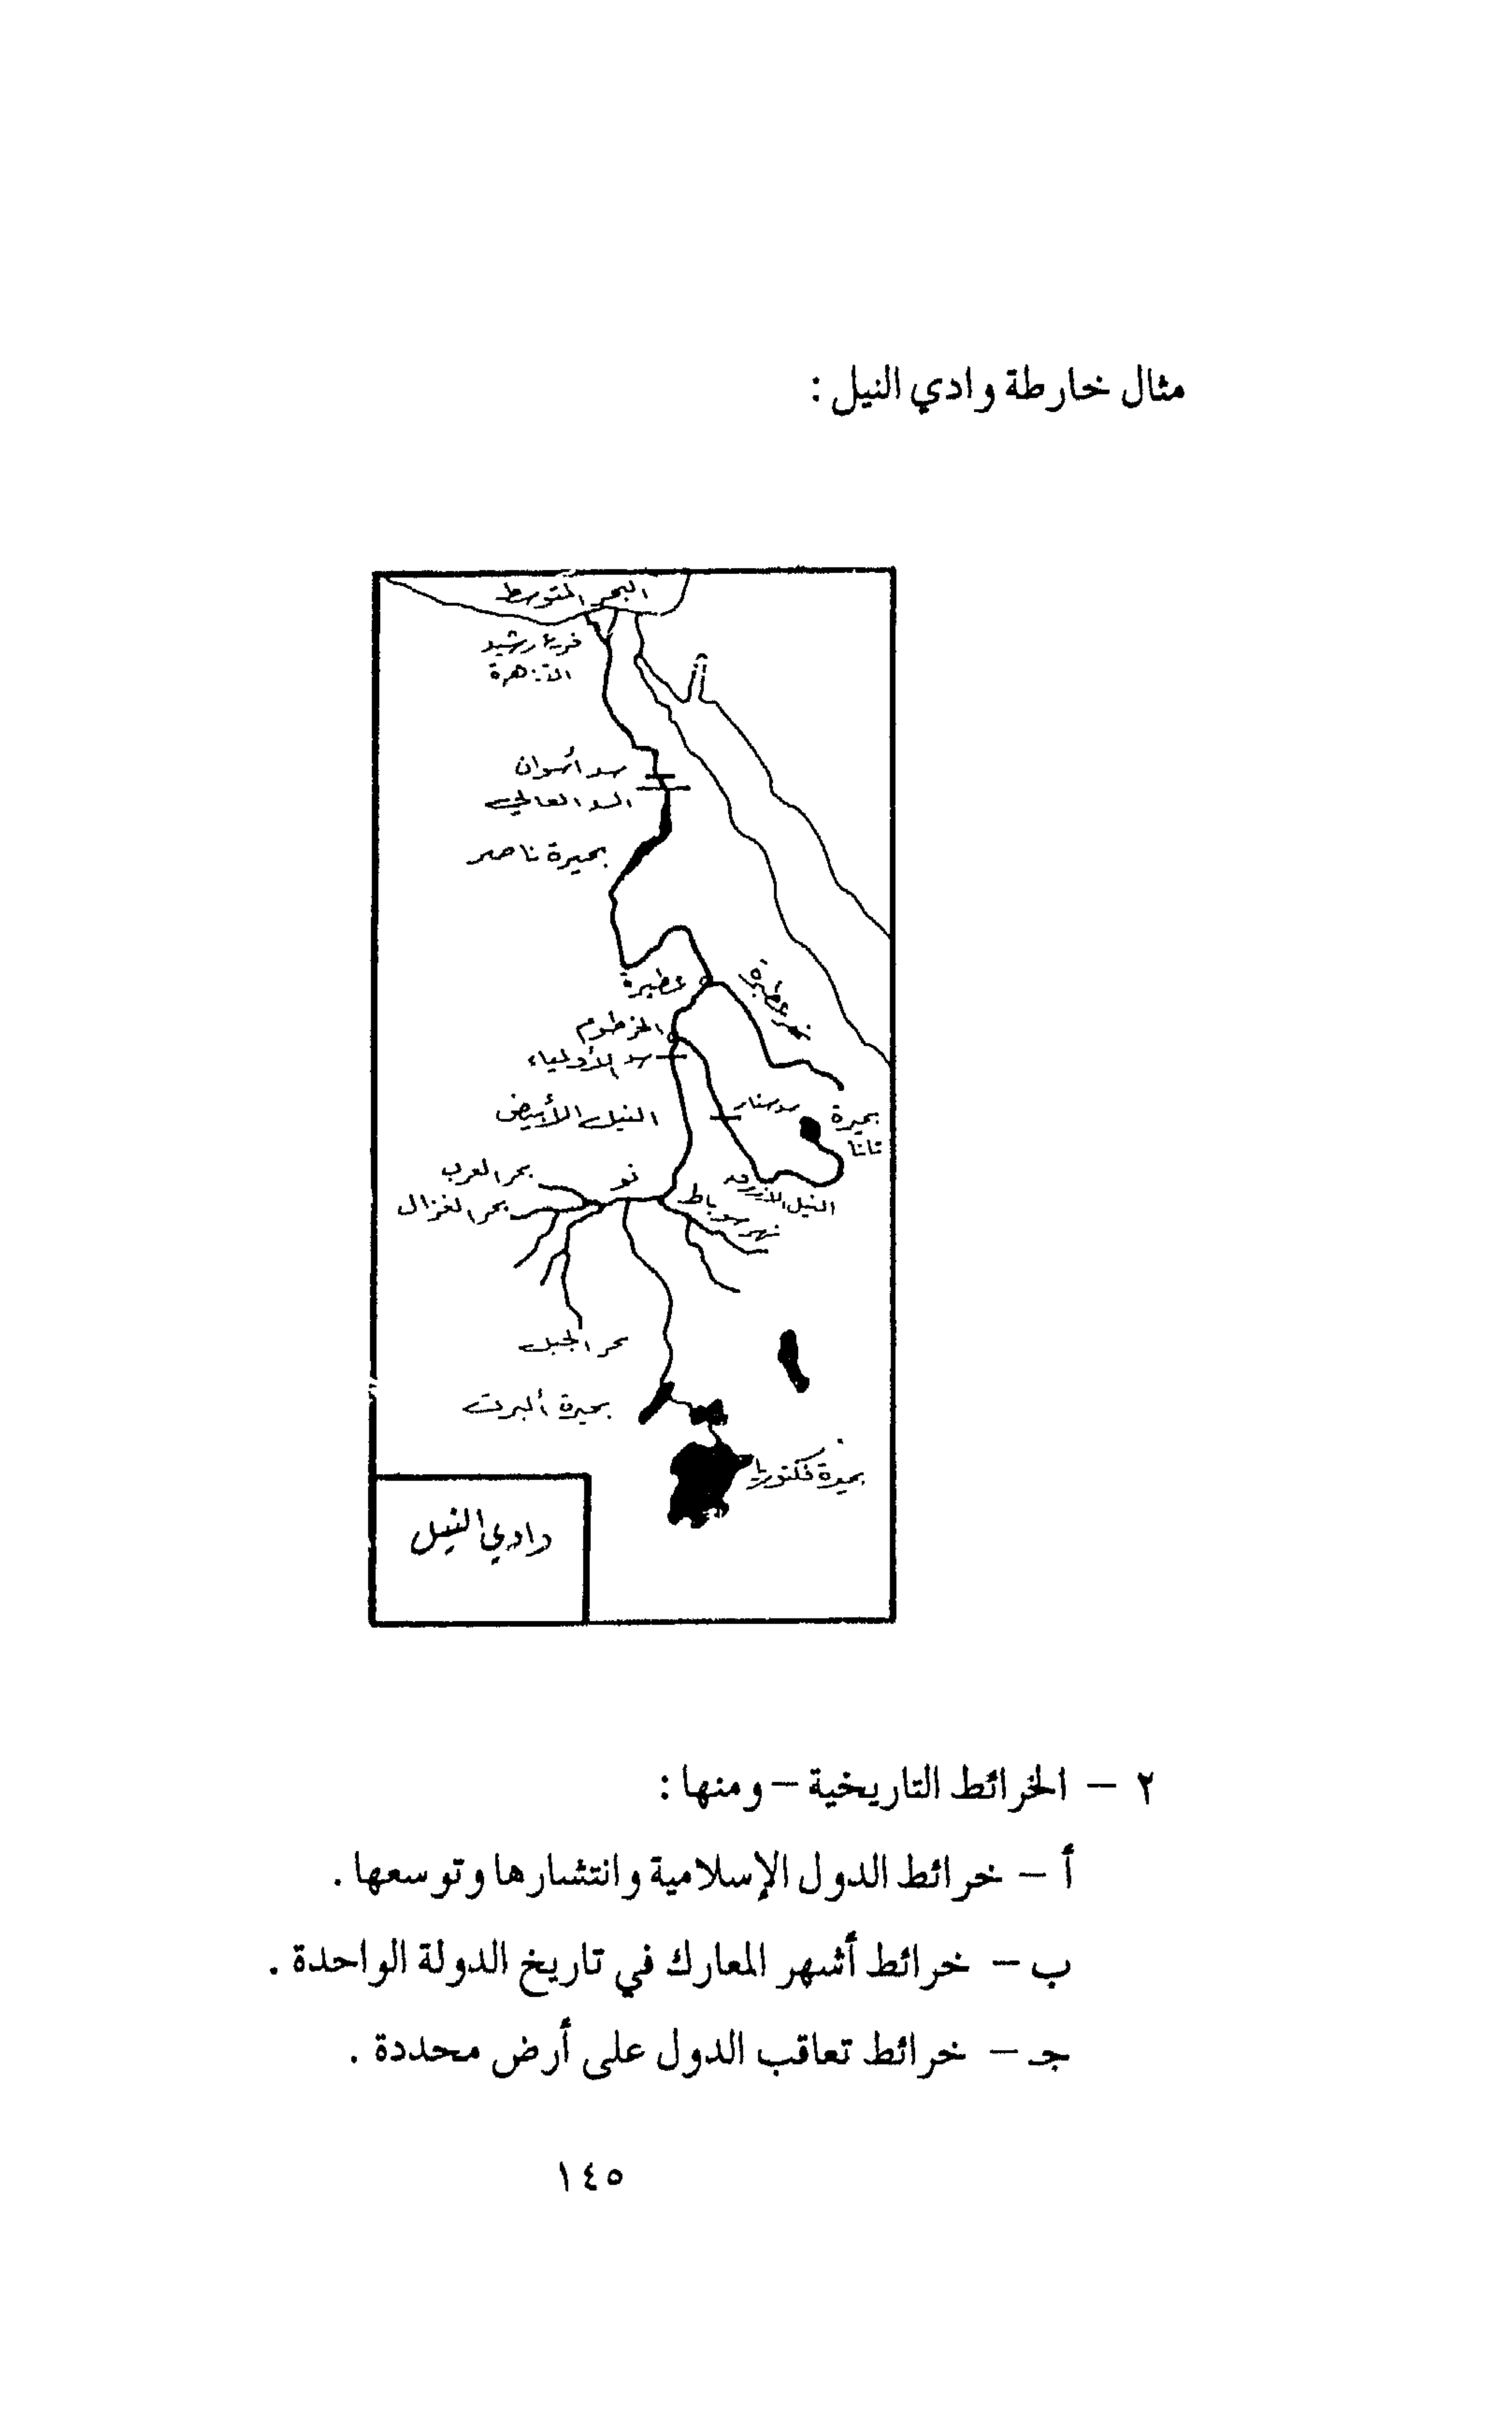 مثال خارطة وادي النيل :
البحر المتوسط
فرع رشيد
القاهرة
سد أسوان
السد العالي
بحيرة ناصر
عطبرة
نهر عطبرة
الخرطوم
سد الأولياء
سد سنار
بحيرة
تانا
النيل الأبيض
النيل الأزرق
بحر العرب
نو
نهر سوباط
بحر الغزال
بحر الجبل
بحيرة ألبرت
بحيرة فكتوريا
وادي النيل
٢ – الخرائط التاريخية – ومنها :
أ – خرائط الدول الإسلامية وانتشارها وتوسعها .
ب – خرائط أشهر المعارك في تاريخ الدولة الواحدة .
جـ – خرائط تعاقب الدول على أرض محددة .
١٤٥